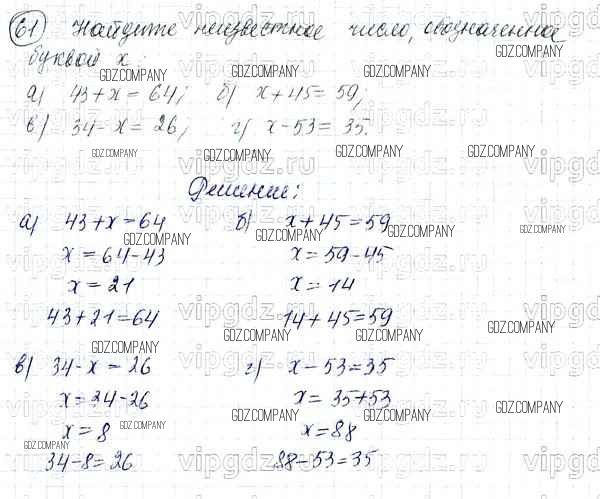 61 Найдите неизвестное число, обозначенное
буквой x:
а) 43+x=64; б) x+45=59;
в) 34-x=26; г) x-53=35.
Решение:
а) 43+x=64 б) x+45=59
x=64-43 x=59-45
x=21 x=14
43+21=64 14+45=59
в) 34-x=26 г) x-53=35
x=34-26 x=35+53
x=8 x=88
34-8=26 88-53=35
GDZ.COMPANY
vipgdz.ru